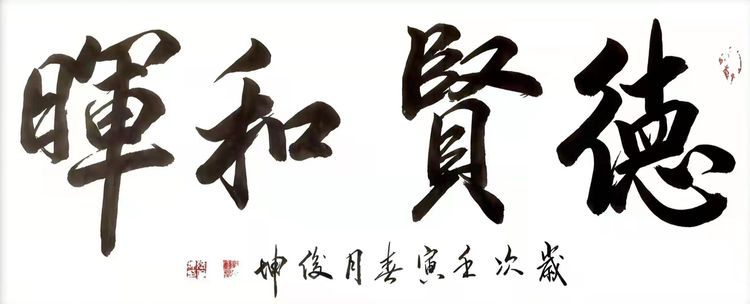 德賢和暉
歲次壬寅春月俊坤